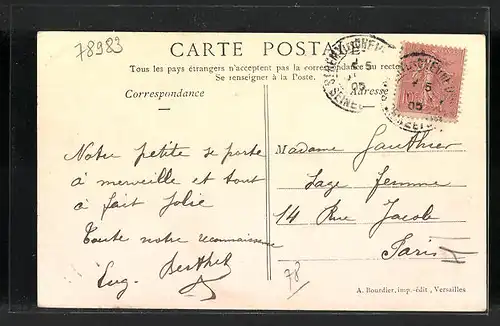 78983
CARTE POSTALE
Tous les pays étrangers n'acceptent pas la correspondance au recto
Se renseigner à la Poste.
Correspondance
Adresse
Notre petite se porte
à merveille et tout
à fait jolie
Toute notre reconnaissance
Eug. Berthet
Madame Gauthier
Sage femme
14 Rue Jacob
Paris
78
A. Bourdier, imp.-édit, Versailles